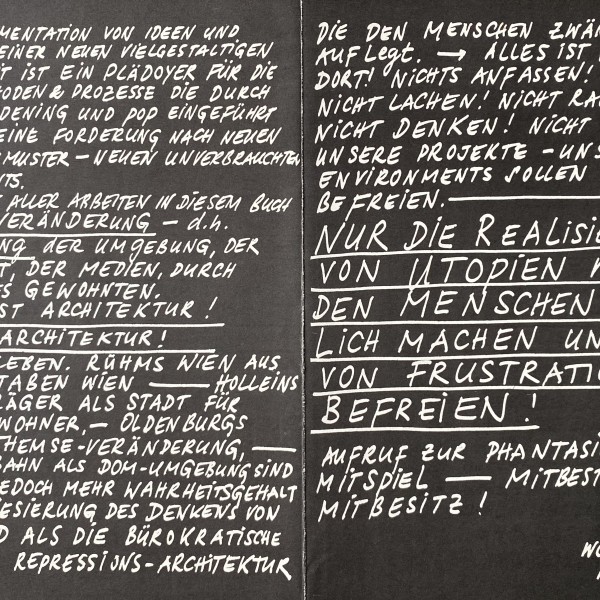 MENTATION VON IDEEN UND
EINER NEUEN VIELGESTALTIGEN
T IST EIN PLÄDOYER FÜR DIE
ODEN & PROZESSE DIE DURCH
DENING UND POP EINGEFÜHRT
EINE FORDERUNG NACH NEUEN
MUSTER – NEUEN UNVERBRAUCHTEN
NTS.
ALLER ARBEITEN IN DIESEM BUCH
VERÄNDERUNG – d.h.
NG der UMGEBUNG, DER
T, DER MEDIEN, DURCH
ES GEWOHNTEN.
ST ARCHITEKTUR!
ARCHITEKTUR!
LEBEN. RÜHMS WIEN AUS
TABEN WIEN — HOLLEINS
RÄGER ALS STADT FÜR
WOHNER, – OLDENBURGS
THEMSE-VERÄNDERUNG, —
BAHN ALS DOM-UMGEBUNG SIND
EDOCH MEHR WAHRHEITSGEHALT
IESIERUNG DES DENKENS VON
D ALS DIE BÜROKRATISCHE
REPRESSIONS-ARCHITEKTUR
DIE DEN MENSCHEN ZWÄN
AUFLegt. → ALLES IST
DORT! NICHTS ANFASSEN!
NICHT LACHEN! NICHT RA
NICHT DENKEN! NICHT
UNSERE PROJEKTE – UNS
ENVIRONMENTS SOLLEN
BEFREIEN. —
NUR DIE REALISIE
VON UTOPIEN
DEN MENSCHEN
LICH MACHEN UN
VON FRUSTRATIO
BEFREIEN!
AUFRUF ZUR PHANTASI
MITSPIEL — MITBEST
MITBESITZ!
WO